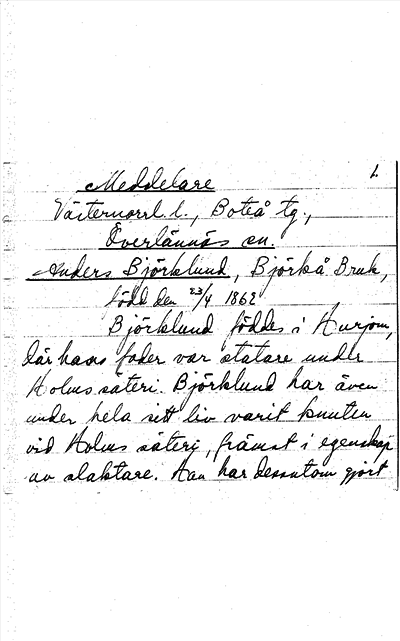 1.
Meddelare
Västernorrl. l., Boteå tg.,
Överlännäs sn.
Anders Björklund, Björkå Bruk,
född den 23/4 1862
Björklund föddes i Kurjom,
där hans fader var statare under
Holms säteri. Björklund har även
under hela sitt liv varit knuten
vid Holms säteri, främst i egenskap
av slaktare. Han har dessutom gjort